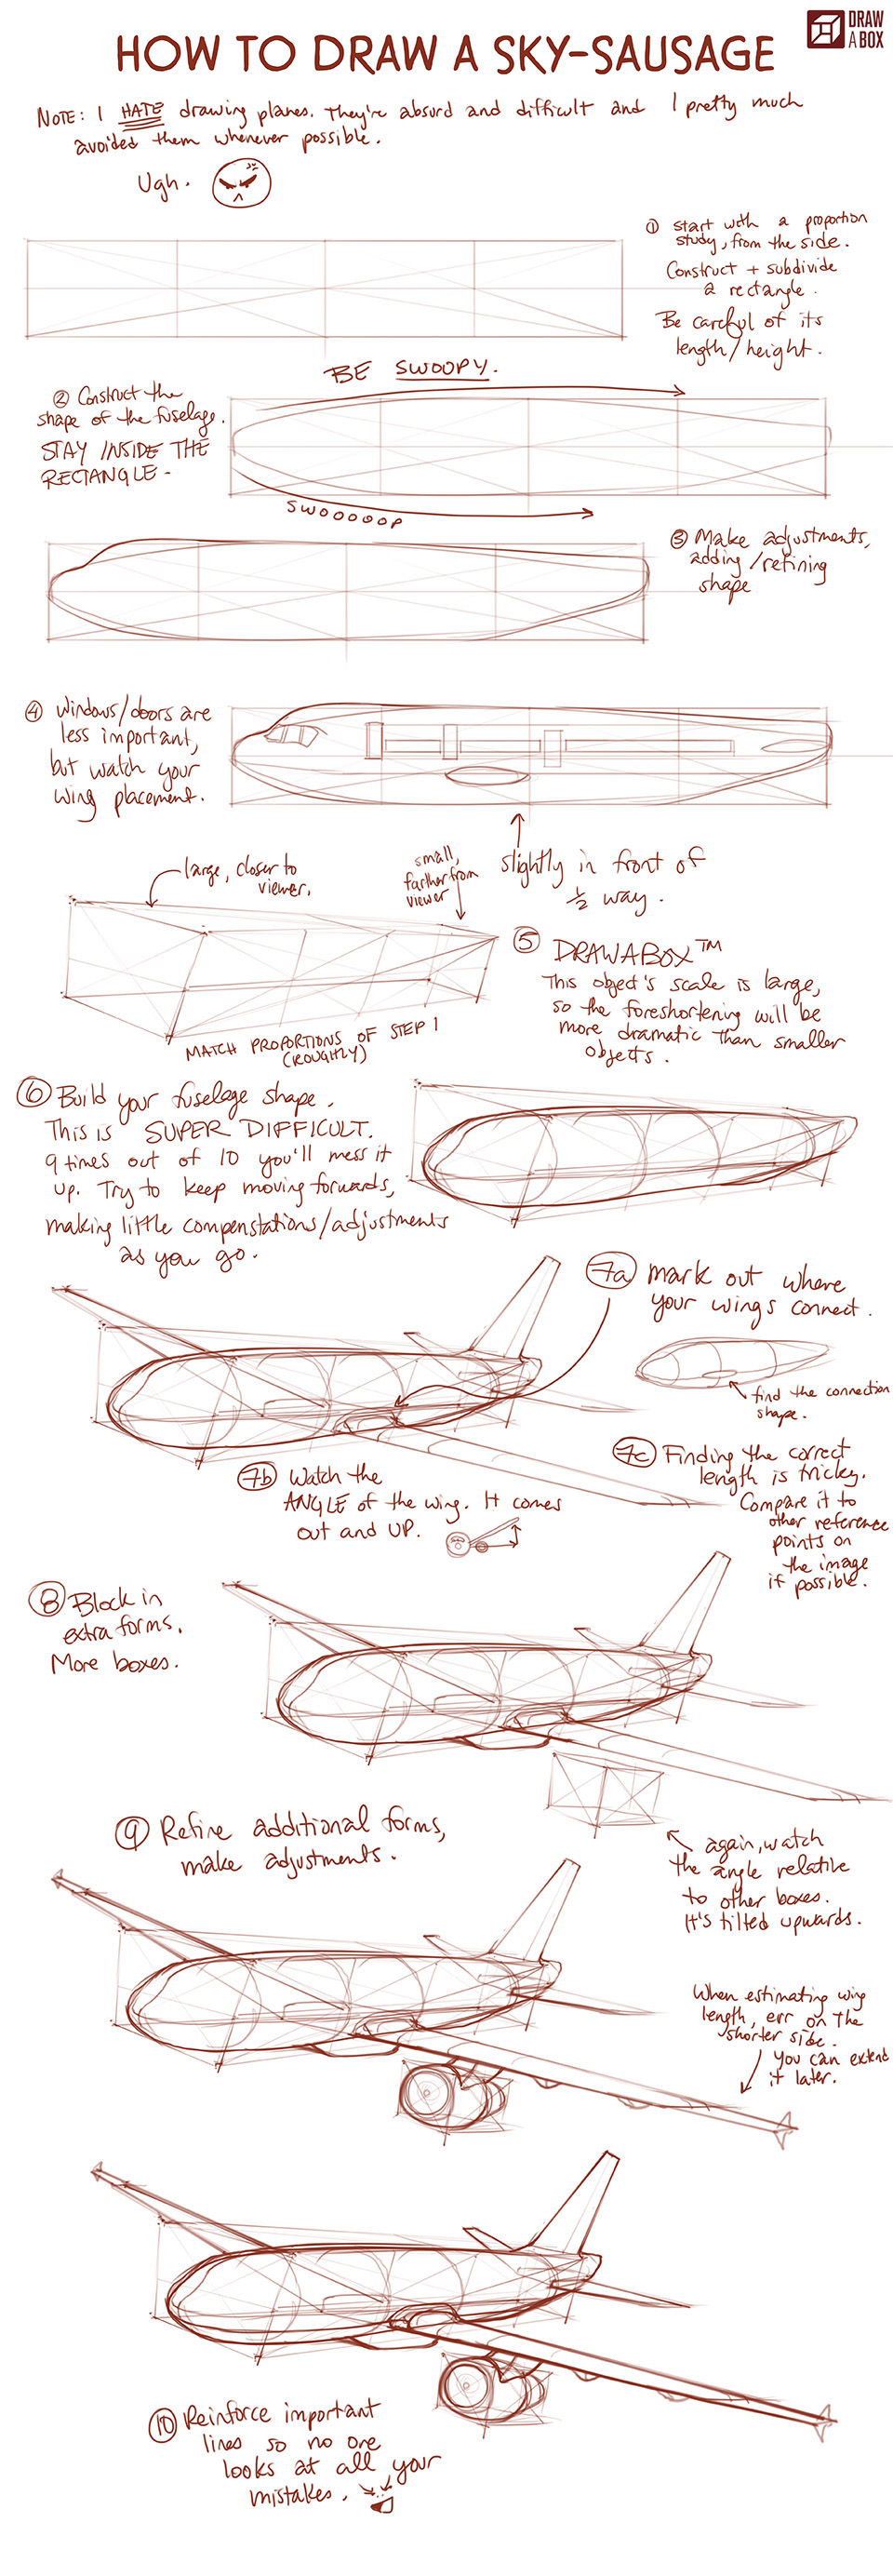 DRAW
A BOX
HOW TO DRAW A SKY-SAUSAGE
NOTE: I HATE drawing planes. They're absurd and difficult and I pretty much
avoided them whenever possible.
Ugh.
① start with a proportion
study, from the side.
Construct + subdivide
a rectangle.
Be careful of its
length/height.
BE SWOOPY.
② Construct the
shape of the fuselage.
STAY INSIDE THE
RECTANGLE-
SWOOOOOP
③ Make adjustments,
adding/refining
shape
④ Windows/doors are
less important,
but watch your
wing placement.
slightly in front of
½ way.
large, closer to
viewer.
small,
farther from
viewer
MATCH PROPORTIONS OF STEP 1
(ROUGHLY)
⑤ DRAWABOX™
This object's scale is large,
so the foreshortening will be
more dramatic than smaller
objects.
⑥ Build your fuselage shape.
This is SUPER DIFFICULT.
9 times out of 10 you'll mess it
up. Try to keep moving forwards,
making little compenstations/adjustments
as you go.
7a mark out where
your wings connect.
find the connection
shape.
7b Watch the
ANGLE of the wing. It comes
out and UP.
7c Finding the correct
length is tricky.
Compare it to
other reference
points on
the image
if possible.
⑧ Block in
extra forms.
More boxes.
again, watch
the angle relative
to other boxes.
It's tilted upwards.
⑨ Refine additional forms,
make adjustments.
When estimating wing
length, err on the
shorter side.
You can extend
it later.
⑩ Reinforce important
lines so no one
looks at all your
mistakes.